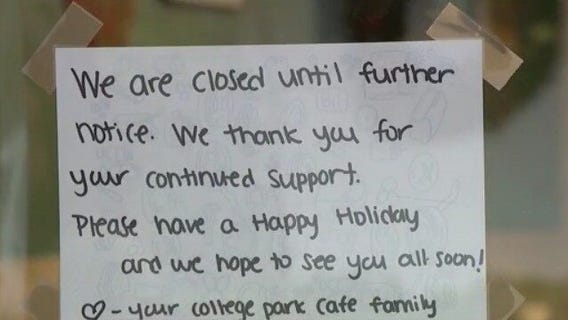 We are closed until further
notice. We thank you for
your continued support.
Please have a Happy Holiday
and we hope to see you all soon!
♡ - your college park cafe family